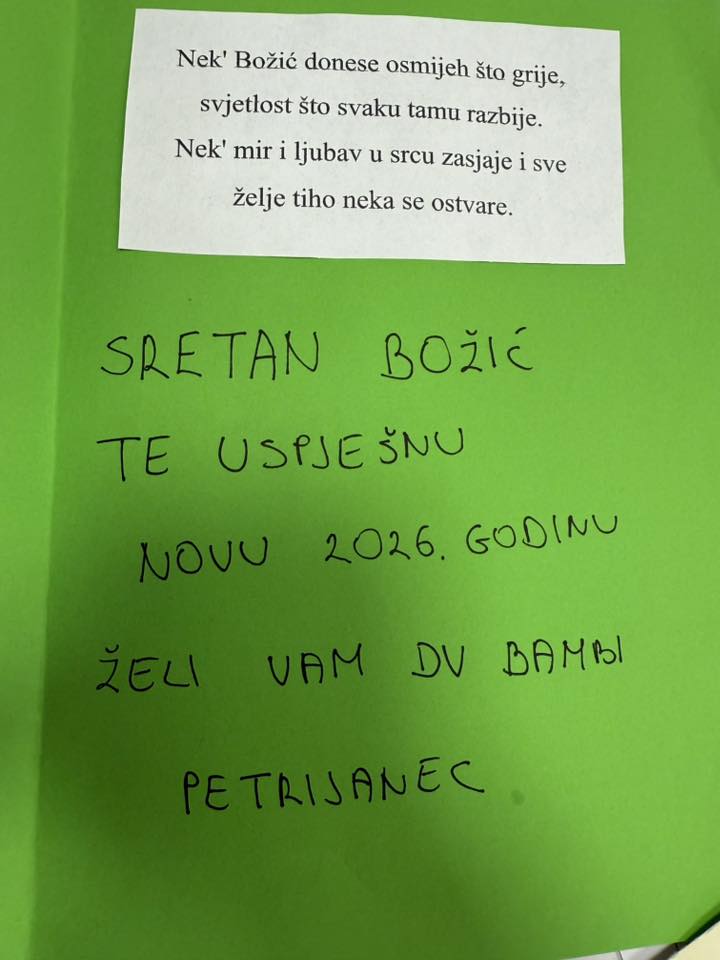 Nek' Božić donese osmijeh što grije,
svjetlost što svaku tamu razbije.
Nek' mir i ljubav u srcu zasjaje i sve
želje tiho neka se ostvare.
SRETAN BOŽIĆ
TE USPJEŠNU
NOVU 2026. GODINU
ŽELI VAM DV BAMBI
PETRIJANEC